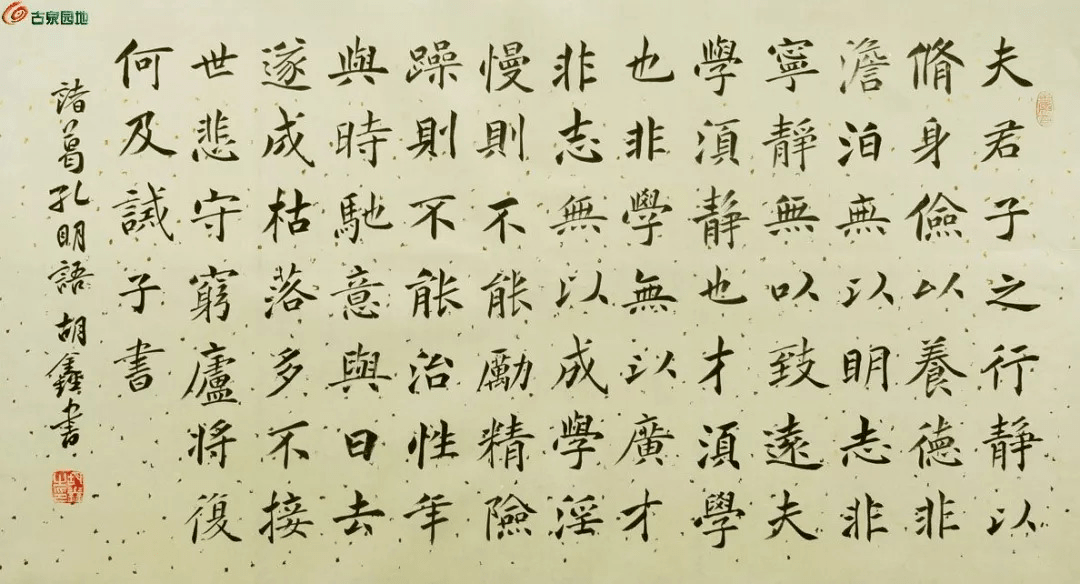 古泉园地
夫君子之行静以
脩身儉以養德非
澹泊無以明志非
寧靜無以致遠夫
學須静也才須學
也非學無以廣才
非志無以成學淫
慢則不能勵精險
躁則不能治性年
與時馳意與日去
遂成枯落多不接
世悲守窮廬將復
何及誡子書
諸葛孔明語 胡鑫書